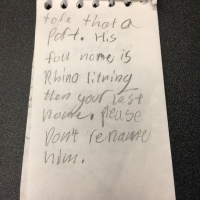 tore that a
Part. His
full name is
Rhino litning
then your last
name. please
Don't rename
him.